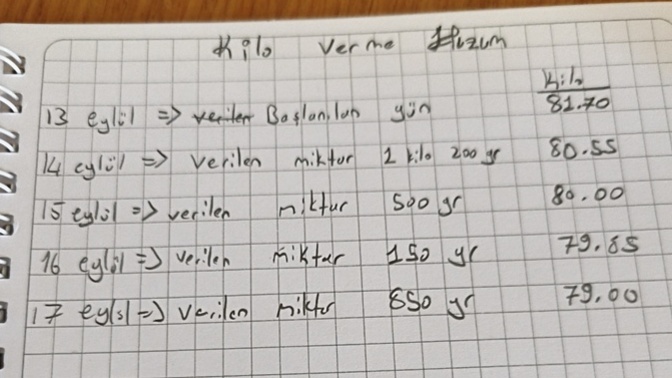 Kilo verme Hızım
Kilo
13 eylül => verilen Başlanılan gün 81.70
14 eylül => verilen miktar 1 kilo 200 gr 80.55
15 eylül => verilen miktar 500 gr 80.00
16 eylül => verilen miktar 150 gr 79.85
17 eylül => verilen miktar 850 gr 79.00